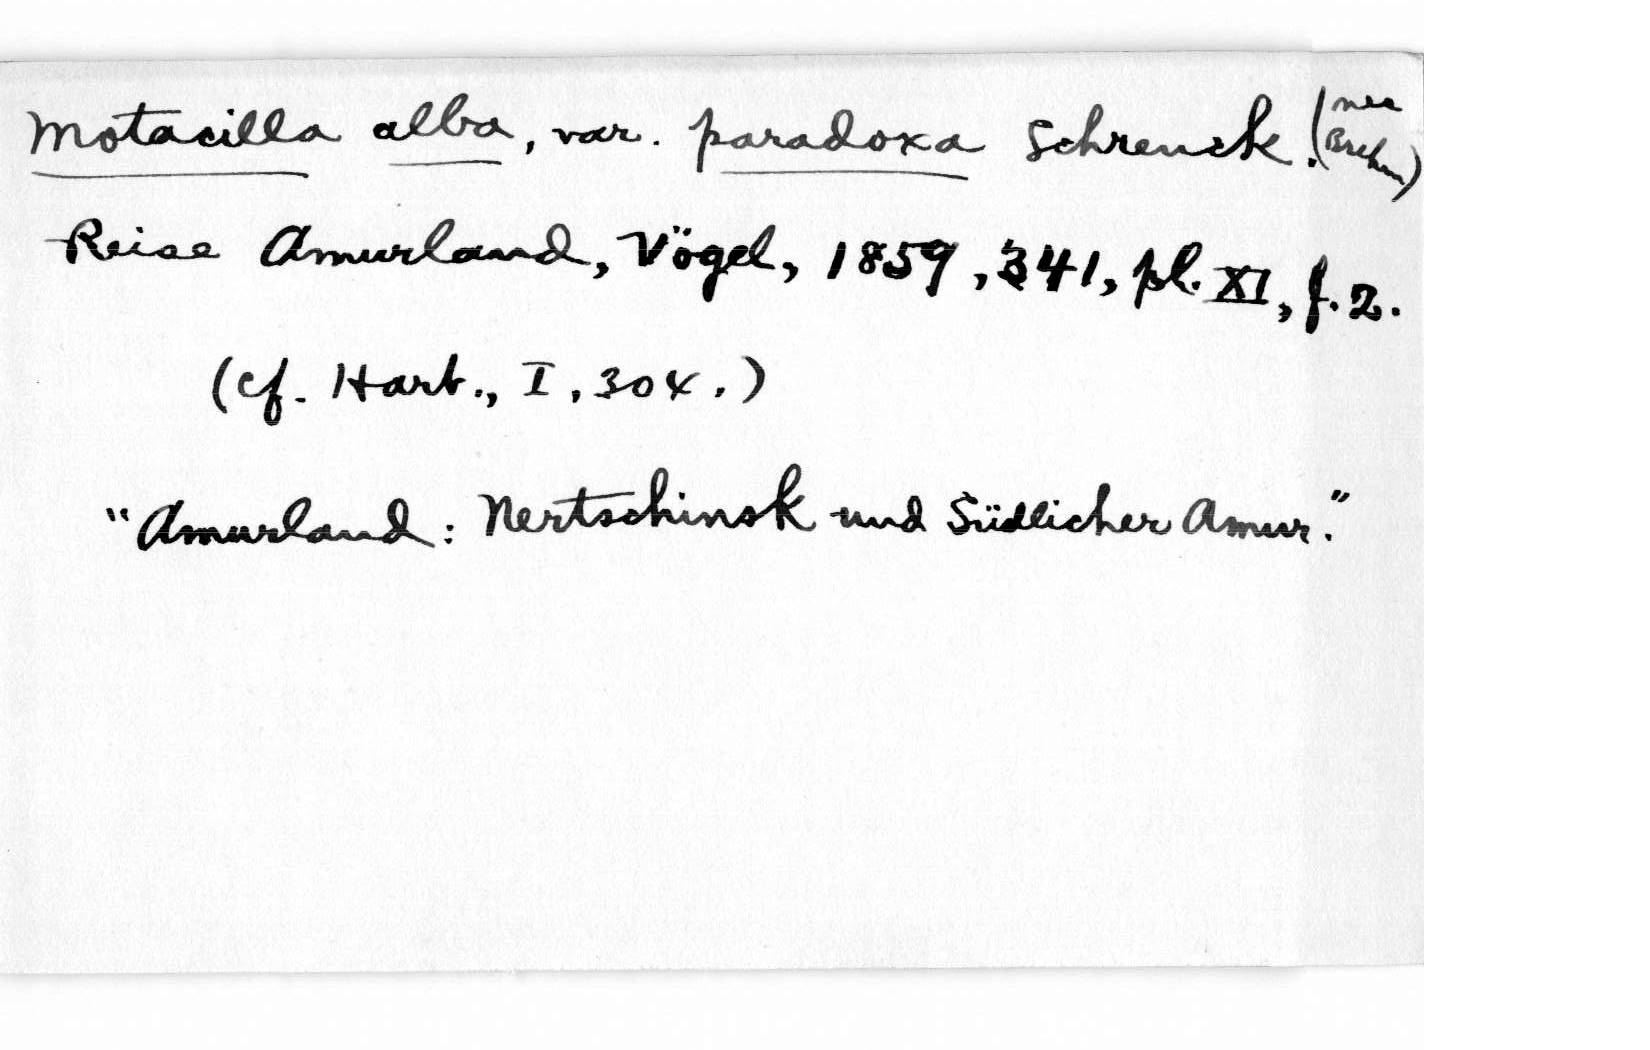 Motacilla alba, var. paradoxa Schrenck. (nec Brehm)
Reise Amurland, Vögel, 1859, 341, pl. XI, f. 2.
(cf. Hart., I, 304.)
"Amurland: Nertschinsk und Südlicher Amur."